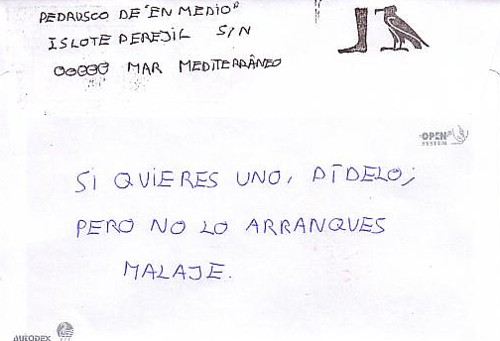 PEDRUSCO DE "EN MEDIO"
ISLOTE PEREJIL S/N
00000 MAR MEDITERRÁNEO
OPEN
SYSTEM
SI QUIERES UNO, PÍDELO;
PERO NO LO ARRANQUES
MALAJE.
AUTODEX